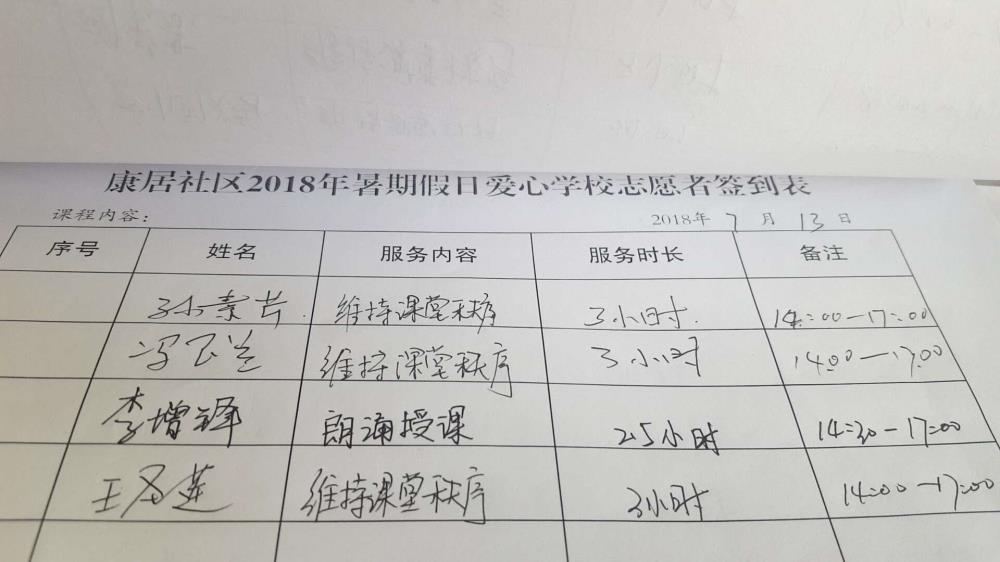 康居社区2018年暑期假日爱心学校志愿者签到表
课程内容： 2018年 7 月 13 日
序号 姓名 服务内容 服务时长 备注
孙素芸 维持课堂秩序 3小时. 14:00—17:00
冯玉兰 维持课堂秩序 3小时 14:00—17:00
李增锋 朗诵授课 2.5小时 14:30-17:00
王 莲 维持课堂秩序 3小时 14:00—17:00